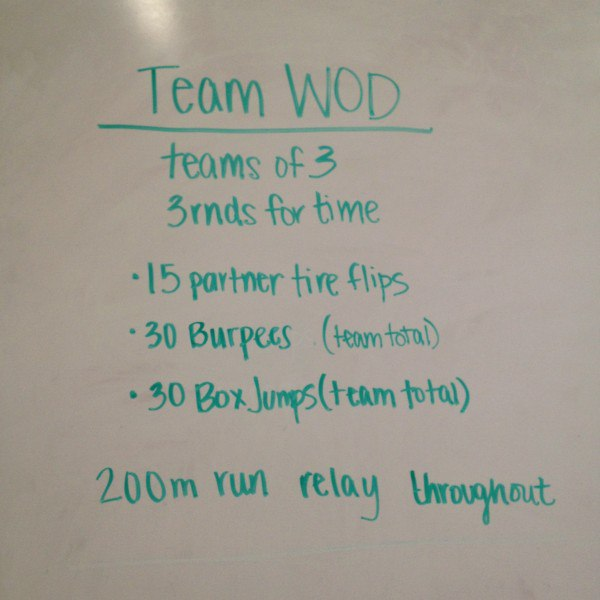 Team WOD
teams of 3
3rnds for time
• 15 partner tire flips
• 30 Burpees (team total)
• 30 Box Jumps (team total)
200m run relay throughout